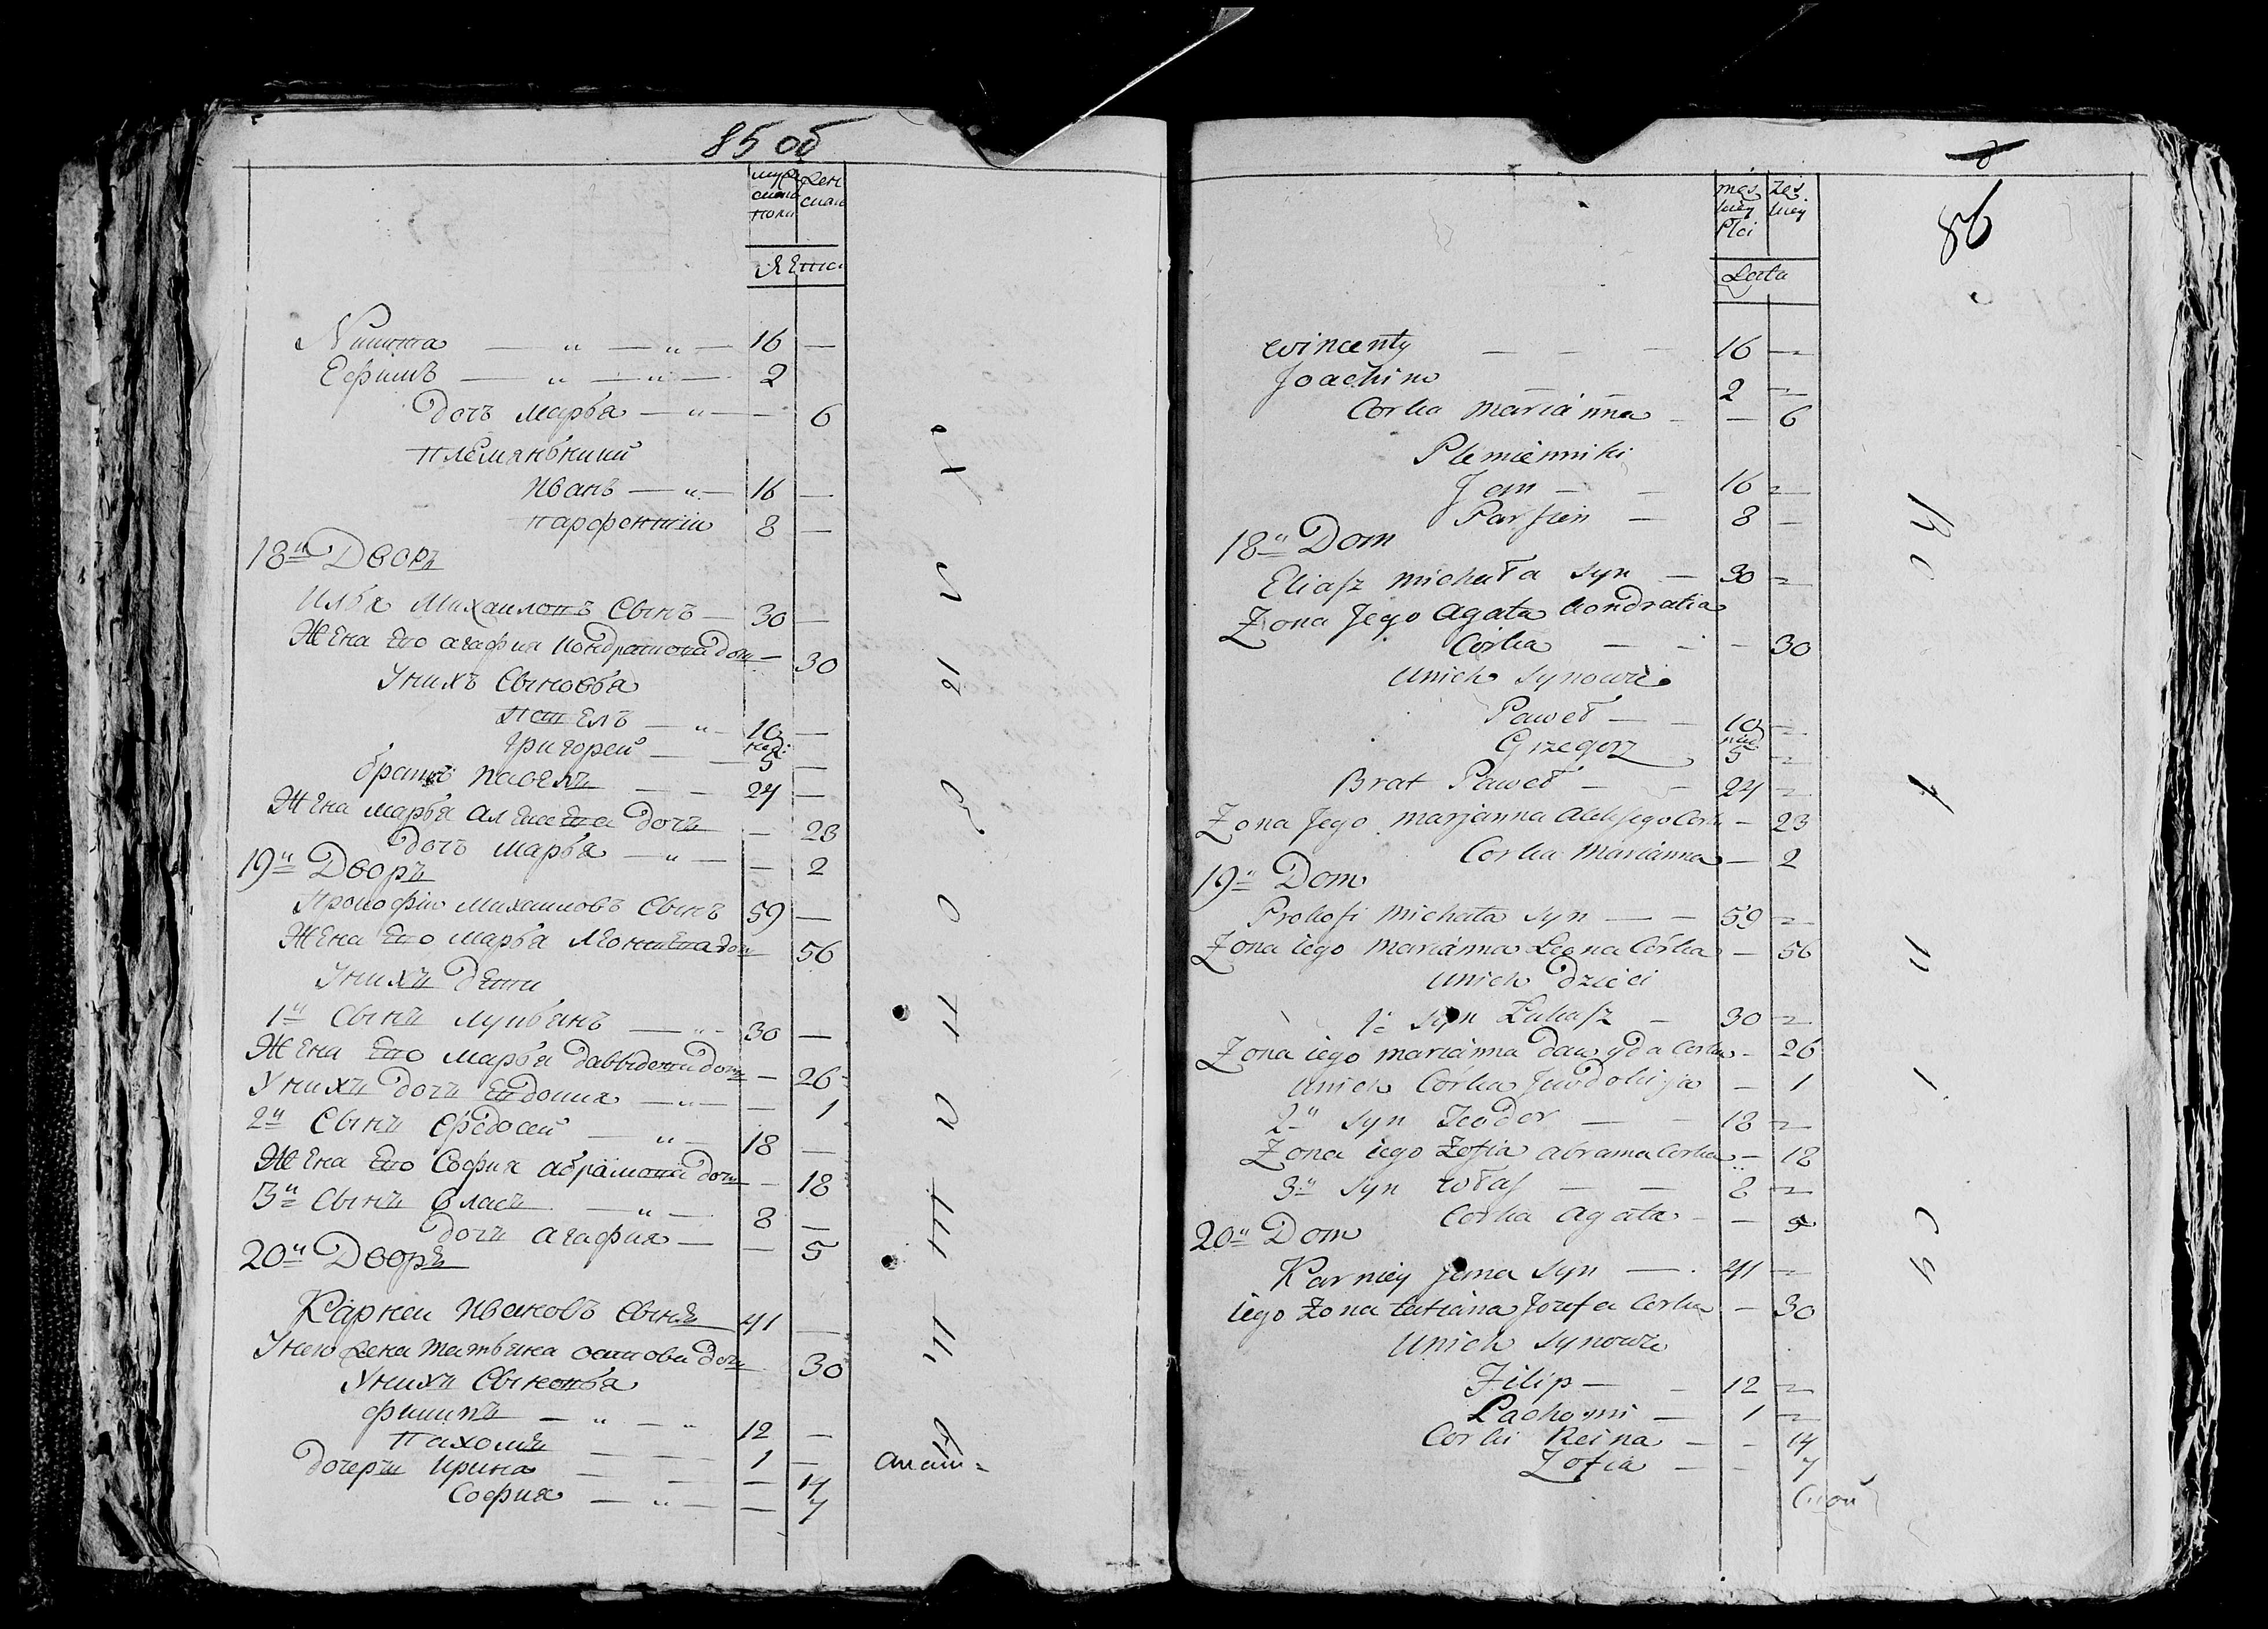 85 об
мужеска полу
женска
Лета
Никита — „ — „ — 16 —
Ефимъ — „ — „ — 2
дочъ марья — „ — — 6
племянъники
Иванъ — „ — 16 —
парфенти 8 —
18й Дворъ
Илья Михаиловъ Сынъ — 30 —
Жена Его агафия Кондратова доч — 30
Унихъ Сыновья
Павелъ — „ — 10 —
Григорей — нед: 5 —
братъ Павелъ — — 24 —
Жена марья алексеева дочъ — 23
дочъ марья — „ — — 2
19й Дворъ
Прокофiи михаиловъ Сынъ 59 —
Жена Его марья Леонтева доч 56
Унихъ дети
1й Сынъ лукьянъ — „ — 30 —
Жена Его марья давыдова дочъ — 26
Унихъ дочъ Евдокия — „ — — 1
2й Сынъ Федосей — „ — 18 —
Жена Его София абрамова дочъ — 18
3й Сынъ власъ — „ — 8 —
дочъ агафия — — 5
20й Дворъ
Карнеи Ивановъ Сынъ 41 —
Унего жена татьяна осипова дочъ 30
Унихъ Сыновья
филипъ — „ — „ 12 —
Пахомъ — — 1 —
дочери Ирина — — — 14
София — „ — — 7
86
męs kiey Płci
żeń skiey
Lata
Wincenty — — — 16 —
Joachim — 2 —
Corka marianna — — 6
Plemienniki
Jan — — 16 —
Parfien — 8 —
18й Dom
Eliasz michała syn — 30 —
Zona Jego agata kondratia
Córka — — — 30
Unich synowie
Paweł — — 10 —
Grzegorz nied 5 —
Brat Paweł — — 24 —
Zona Jego marjanna Aleksego Cork — 23
Corka Marianna — 2
19й Dom
Prokofi michała syn — — 59 —
Zona iego marianna Leona Córka — 56
Unich dzieci
1й syn Łukasz — 30 —
Zona iego marianna dawyda Corka — 26
Unich Córka Jewdokija — 1
2й syn Teodor — — 18 —
Zona iego Zofia abrama Corka — 18
3й syn Włas — — 8 —
Corka agata — — 5
20й Dom
Karniey Jana syn — 41 —
iego Zona tatiana Jozefa Corka — 30
Unich synowie
Filip — — 12 —
Pachomi — 1 —
Corki Reina — — 14
Zofia — — 7